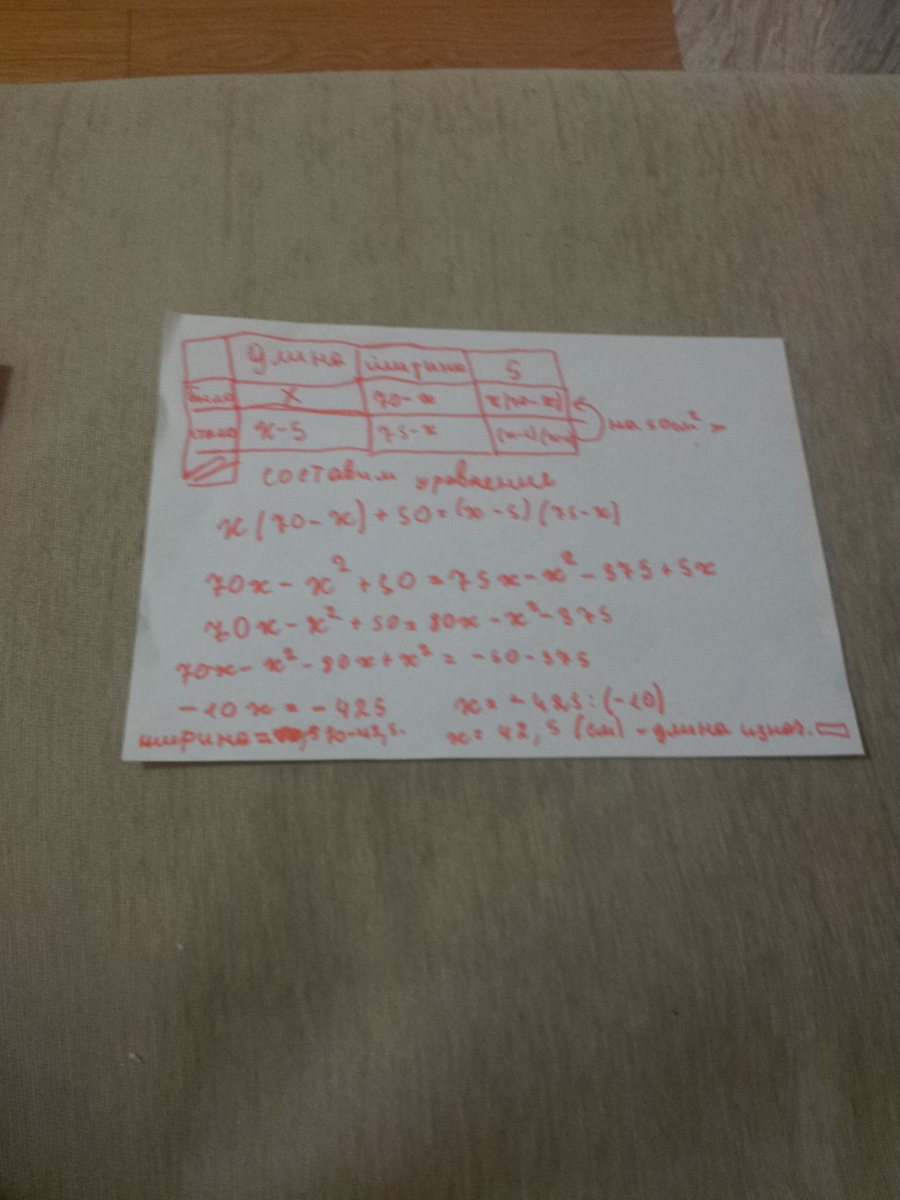 длина ширина S
было x 70-x x(70-x)
стало x-5 75-x на 50см² >
составим уравнение
x(70-x)+50=(x-5)(75-x)
70x-x²+50=75x-x²-375+5x
70x-x²+50=80x-x²-375
70x-x²-80x+x²=-50-375
-10x=-425 x=-425:(-10)
ширина= 70-42,5. x=42,5 (см) -длина изнач.